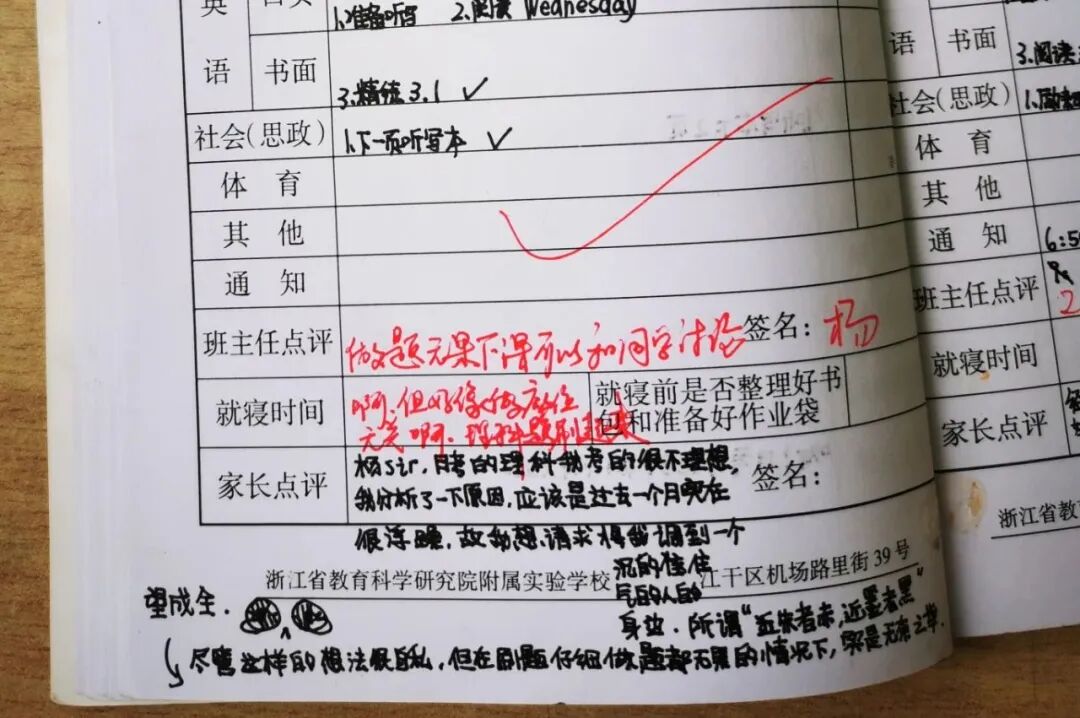 英
语
书面
1.准备听写 2.阅读 Wednesday
3.精练3.1 ✓
社会(思政)
1.下一页听写本 ✓
体育
其他
通知
班主任点评
做题无果下得可以和同学讨论
签名:杨
就寝时间
啊.但好像做座位
无关啊.理科题刷起来
就寝前是否整理好书
包和准备好作业袋
家长点评
杨sir,月考的理科我考的很不理想,
签名:
我分析了一下原因,应该是过去一个月实在
很浮躁,故我想请求将我调到一个
沉的住住
气的人的
身边.所谓“近朱者赤,近墨者黑”
浙江省教育科学研究院附属实验学校
江干区机场路里街39号
望成全.
尽管这样的想法很自私,但在刷题仔细做题都无果的情况下,实是无奈之举.
语
书面
3.阅读
社会(思政)
体育
其他
通知
6:50
班主任点评
就寝时间
家长点评
浙江省教